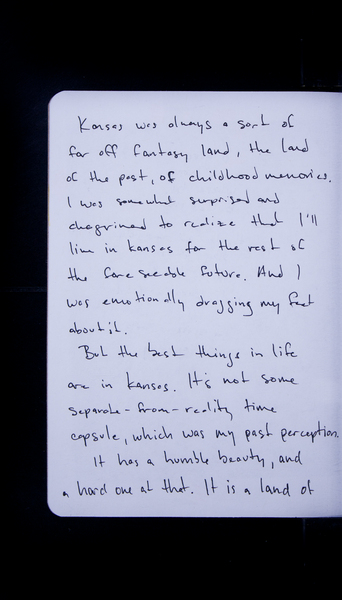 Kansas was always a sort of
far off fantasy land, the land
of the past, of childhood memories.
I was somewhat surprised and
chagrined to realize that I'll
live in Kansas for the rest of
the foreseeable future. And I
was emotionally dragging my feet
about it.
But the best things in life
are in Kansas. It's not some
separate-from-reality time
capsule, which was my past perception.
It has a humble beauty, and
a hard one at that. It is a land of